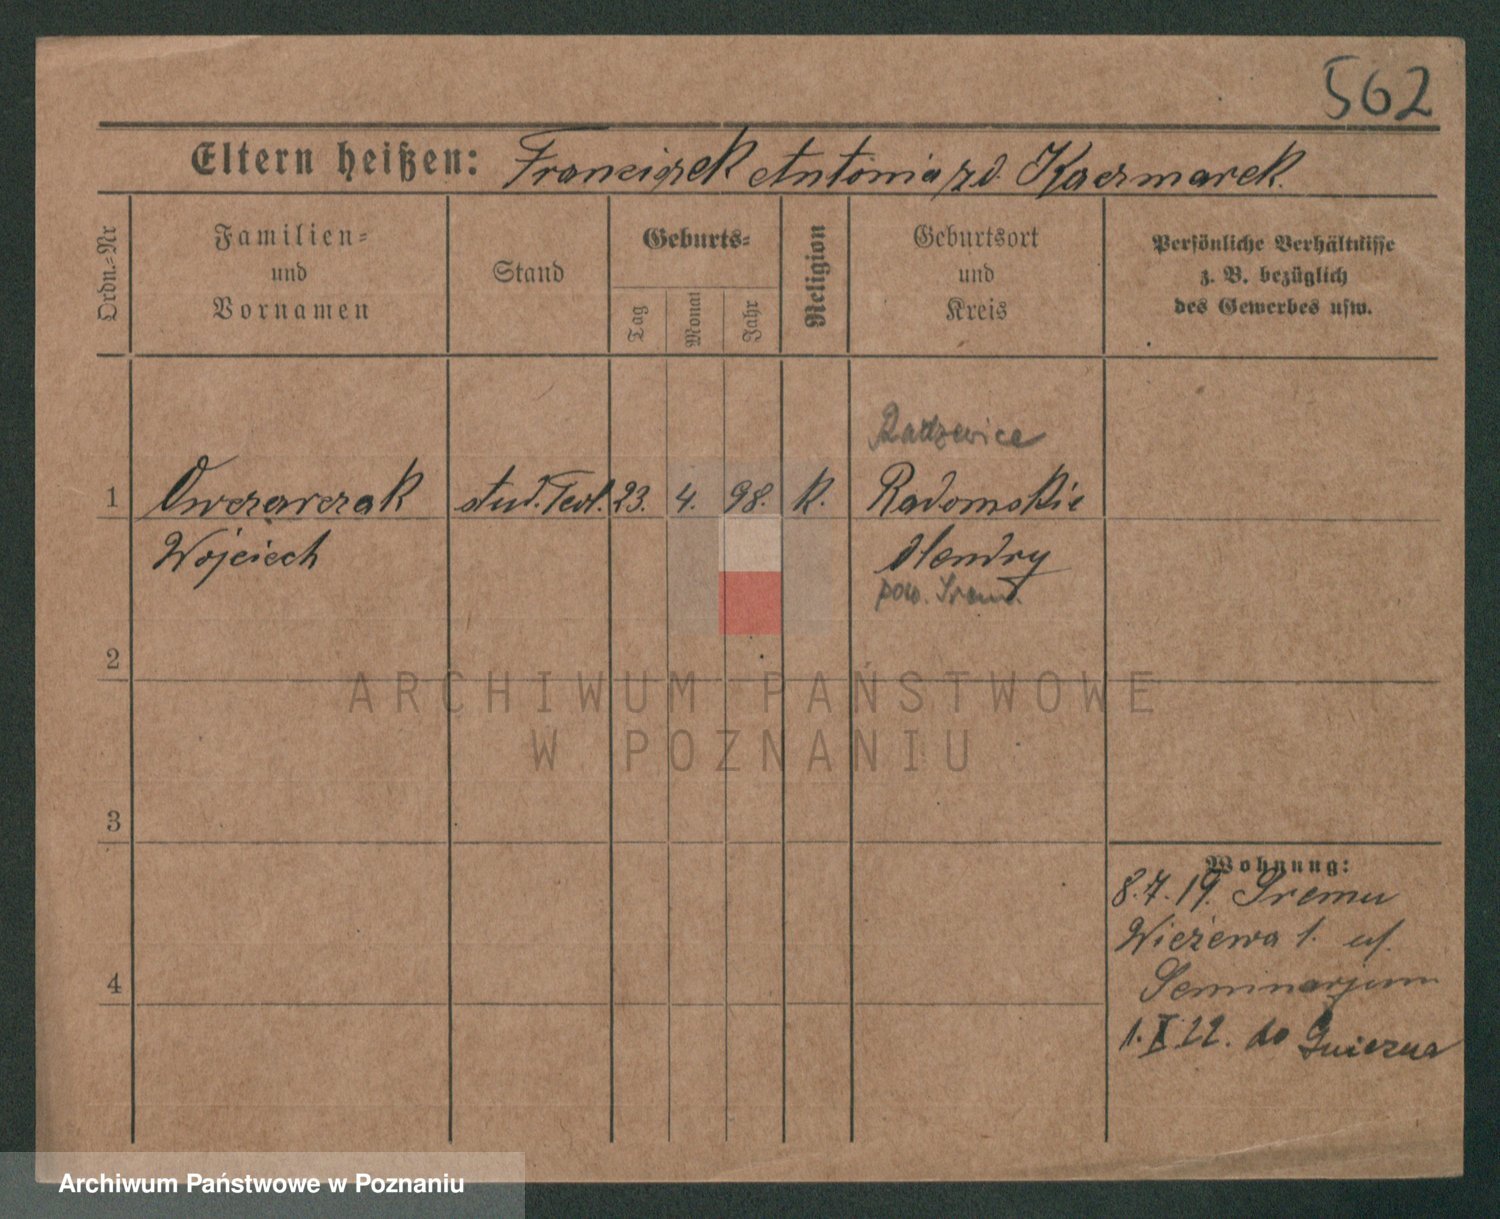 562
Eltern heißen: Franciszek Antonia rd. Kaczmarek.
Ordn.-Nr
Familien-
und
Vornamen
Stand
Geburts-
Tag
Monat
Jahr
Religion
Geburtsort
und
Kreis
Persönliche Verhältnisse
z. B. bezüglich
des Gewerbes usw.
Radzewice
1 Owczarczak stud. Teol. 23. 4. 98. k. Radomskie
Wojciech Hendry
pow. Śrem.
2
ARCHIWUM PAŃSTWOWE
W POZNANIU
3
Wohnung:
8.7.19. Śremu
Wieżewa 1. ul.
4
Seminarjum
1.X.22. do Gniezna
Archiwum Państwowe w Poznaniu